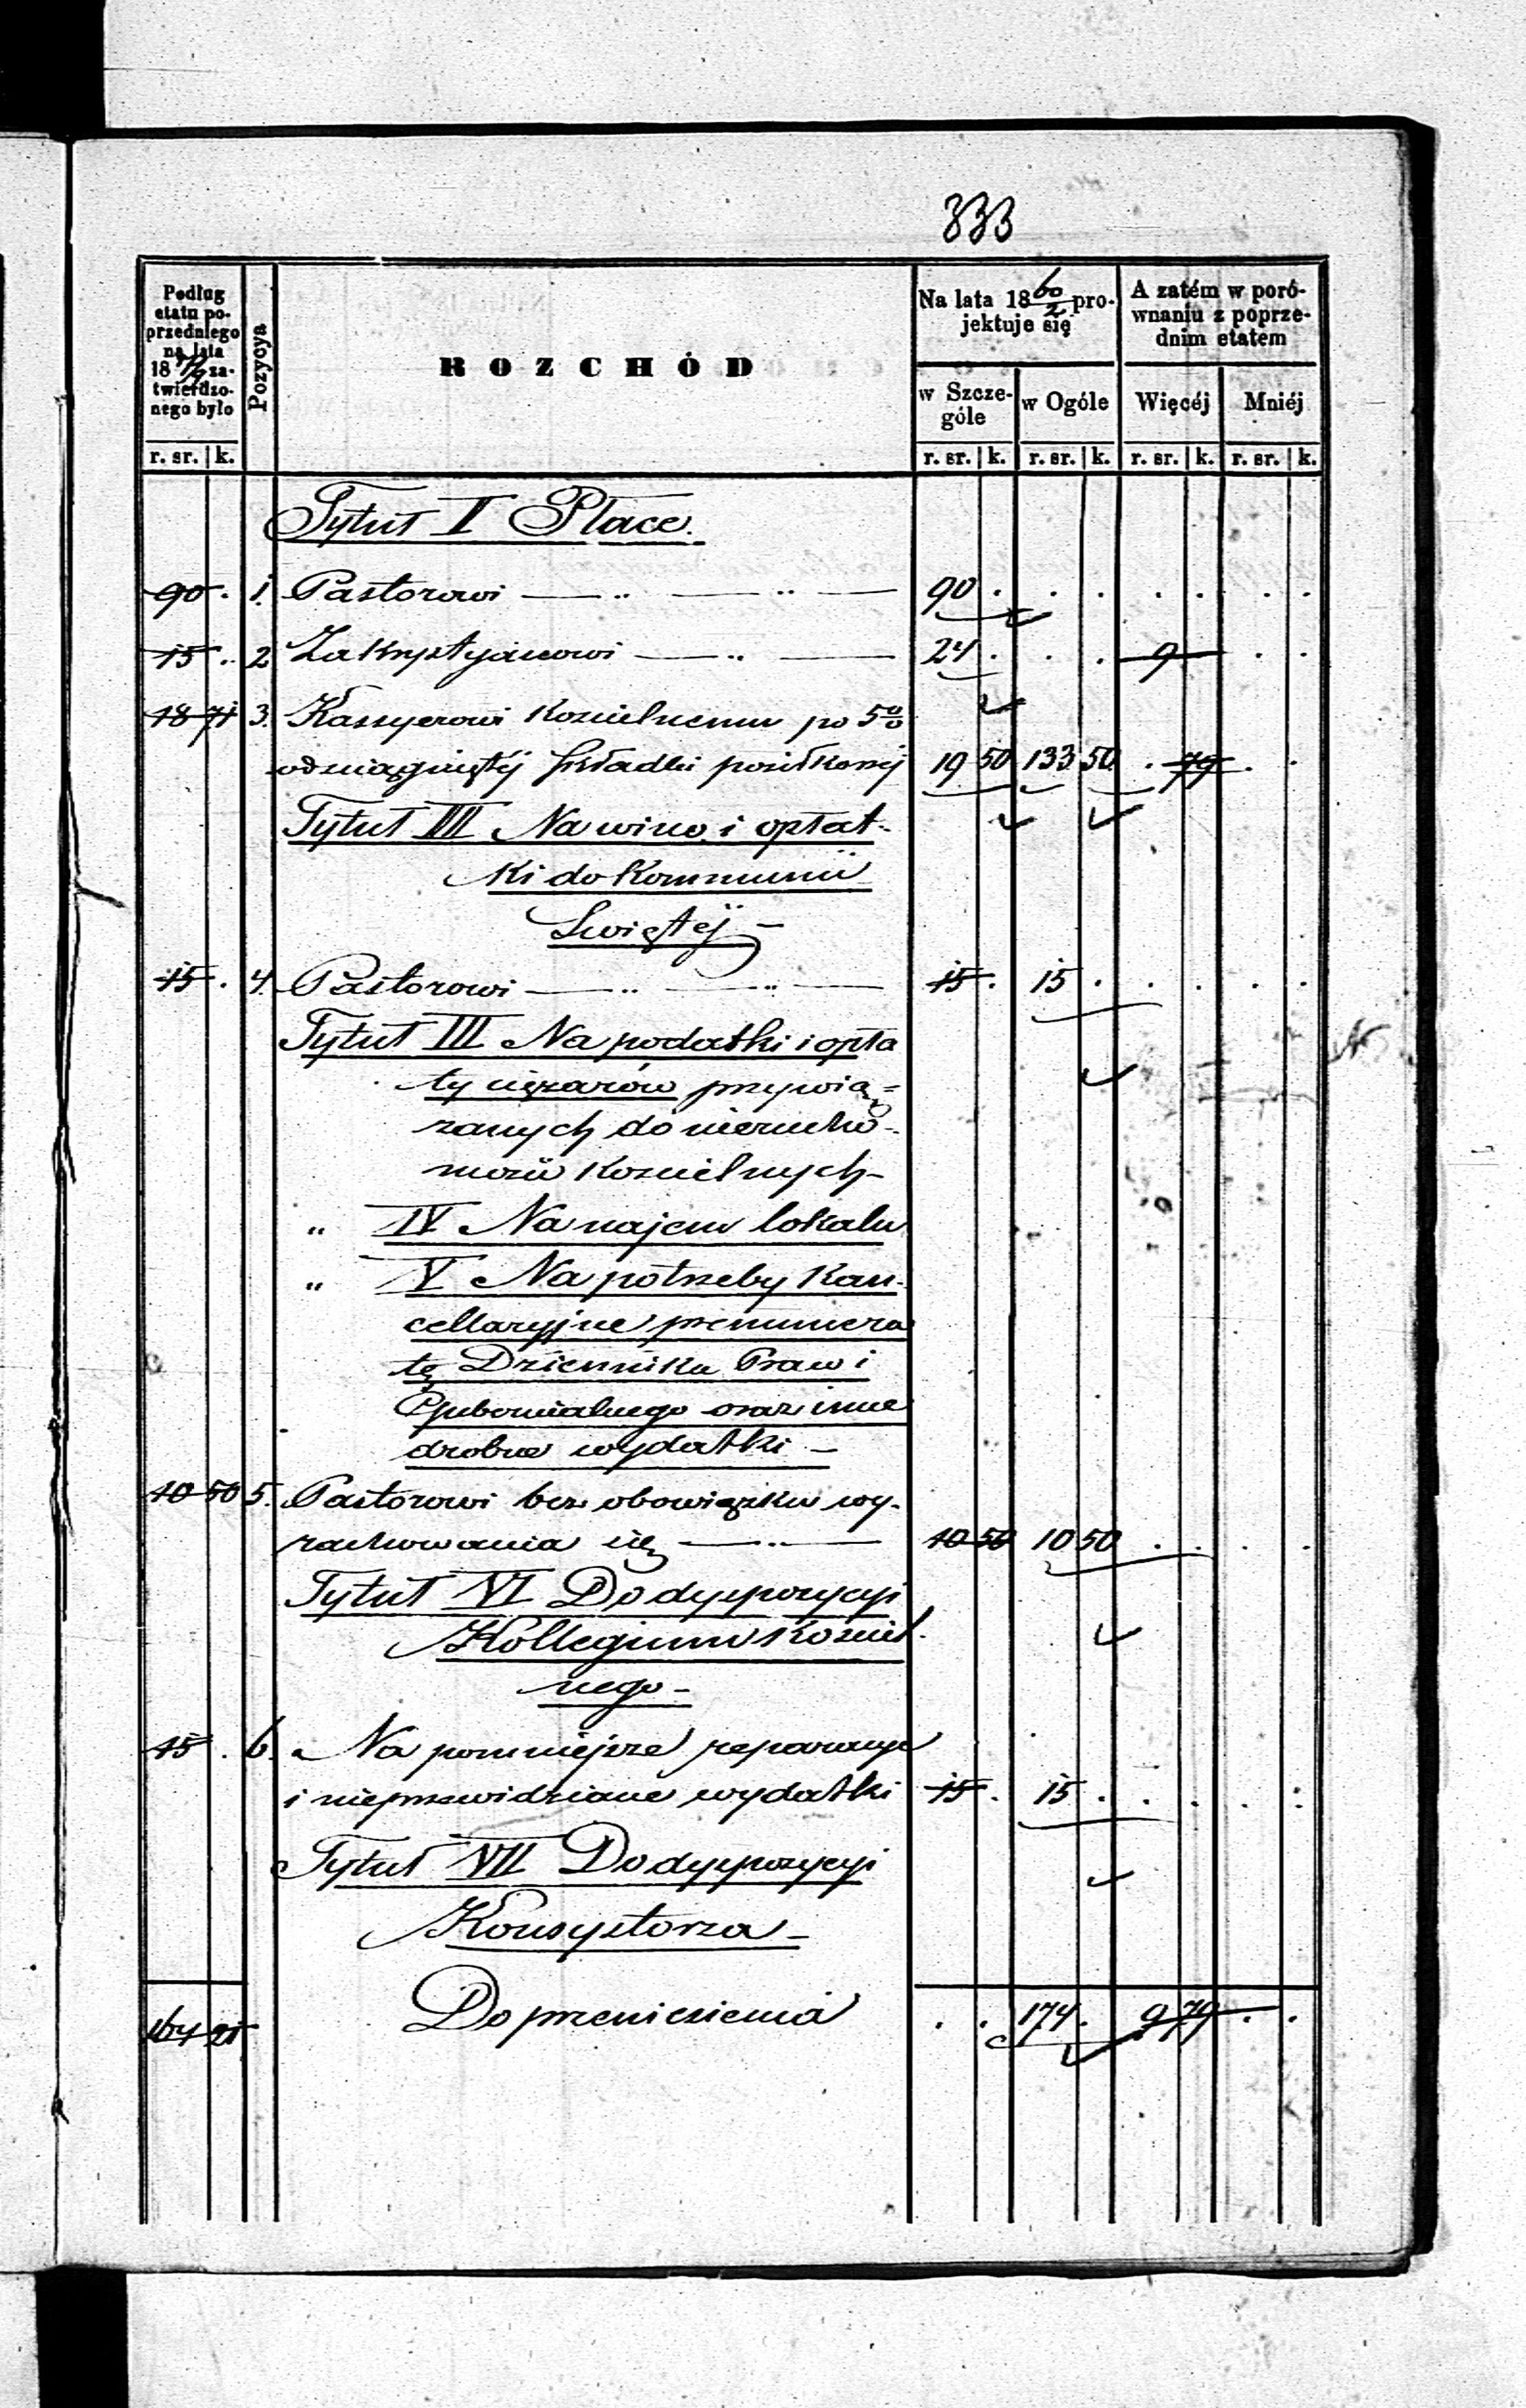 333
Podług etatu poprzedniego na lata 18 zatwierdzonego było
Pozycya
ROZCHÓD
Na lata 18 60/2 projektuje się
A zatém w porównaniu z poprzednim etatem
w Szczególe
w Ogóle
Więcéj
Mniéj
r. sr. k. r. sr. k. r. sr. k. r. sr. k. r. sr. k.
Tytuł I Płace.
90 . 1. Pastorowi 90 . . . . . . .
15 . 2 Zakrystyanowi 24 . . . 9 . .
18 71 3. Kassyerowi Kościelnemu po 5%
od sciągniętéj składki posiłkowéj 19 50 133 50 . 79 . .
Tytuł III Na wino i opłat-
ki do Kommunii
Swiętéj -
15 . 4. Pastorowi 15 . 15 . . . . .
Tytuł III Na podatki i opła
ty ciężarów przywią=
zanych do nierucho-
mości Kościelnych -
" IV Na najem lokalu
" V Na potrzeby Kan-
cellaryjne prenumera
tę Dziennika Praw i
Gubernialnego oraz inne
drobne wydatki -
10 50 5. Pastorowi bez obowiązku wy-
rachowania się 10 50 10 50 . . . .
Tytuł VI Do dyspozycyi
Kollegium Kościel-
nego -
15 . 6. Na pomniejsze reparacye
i nieprzewidziane wydatki 15 . 15 . . . . .
Tytuł VII Do dyspozycyi
Konsystorza -
164 21 Do przeniesienia . . 174 . 9 79 . .